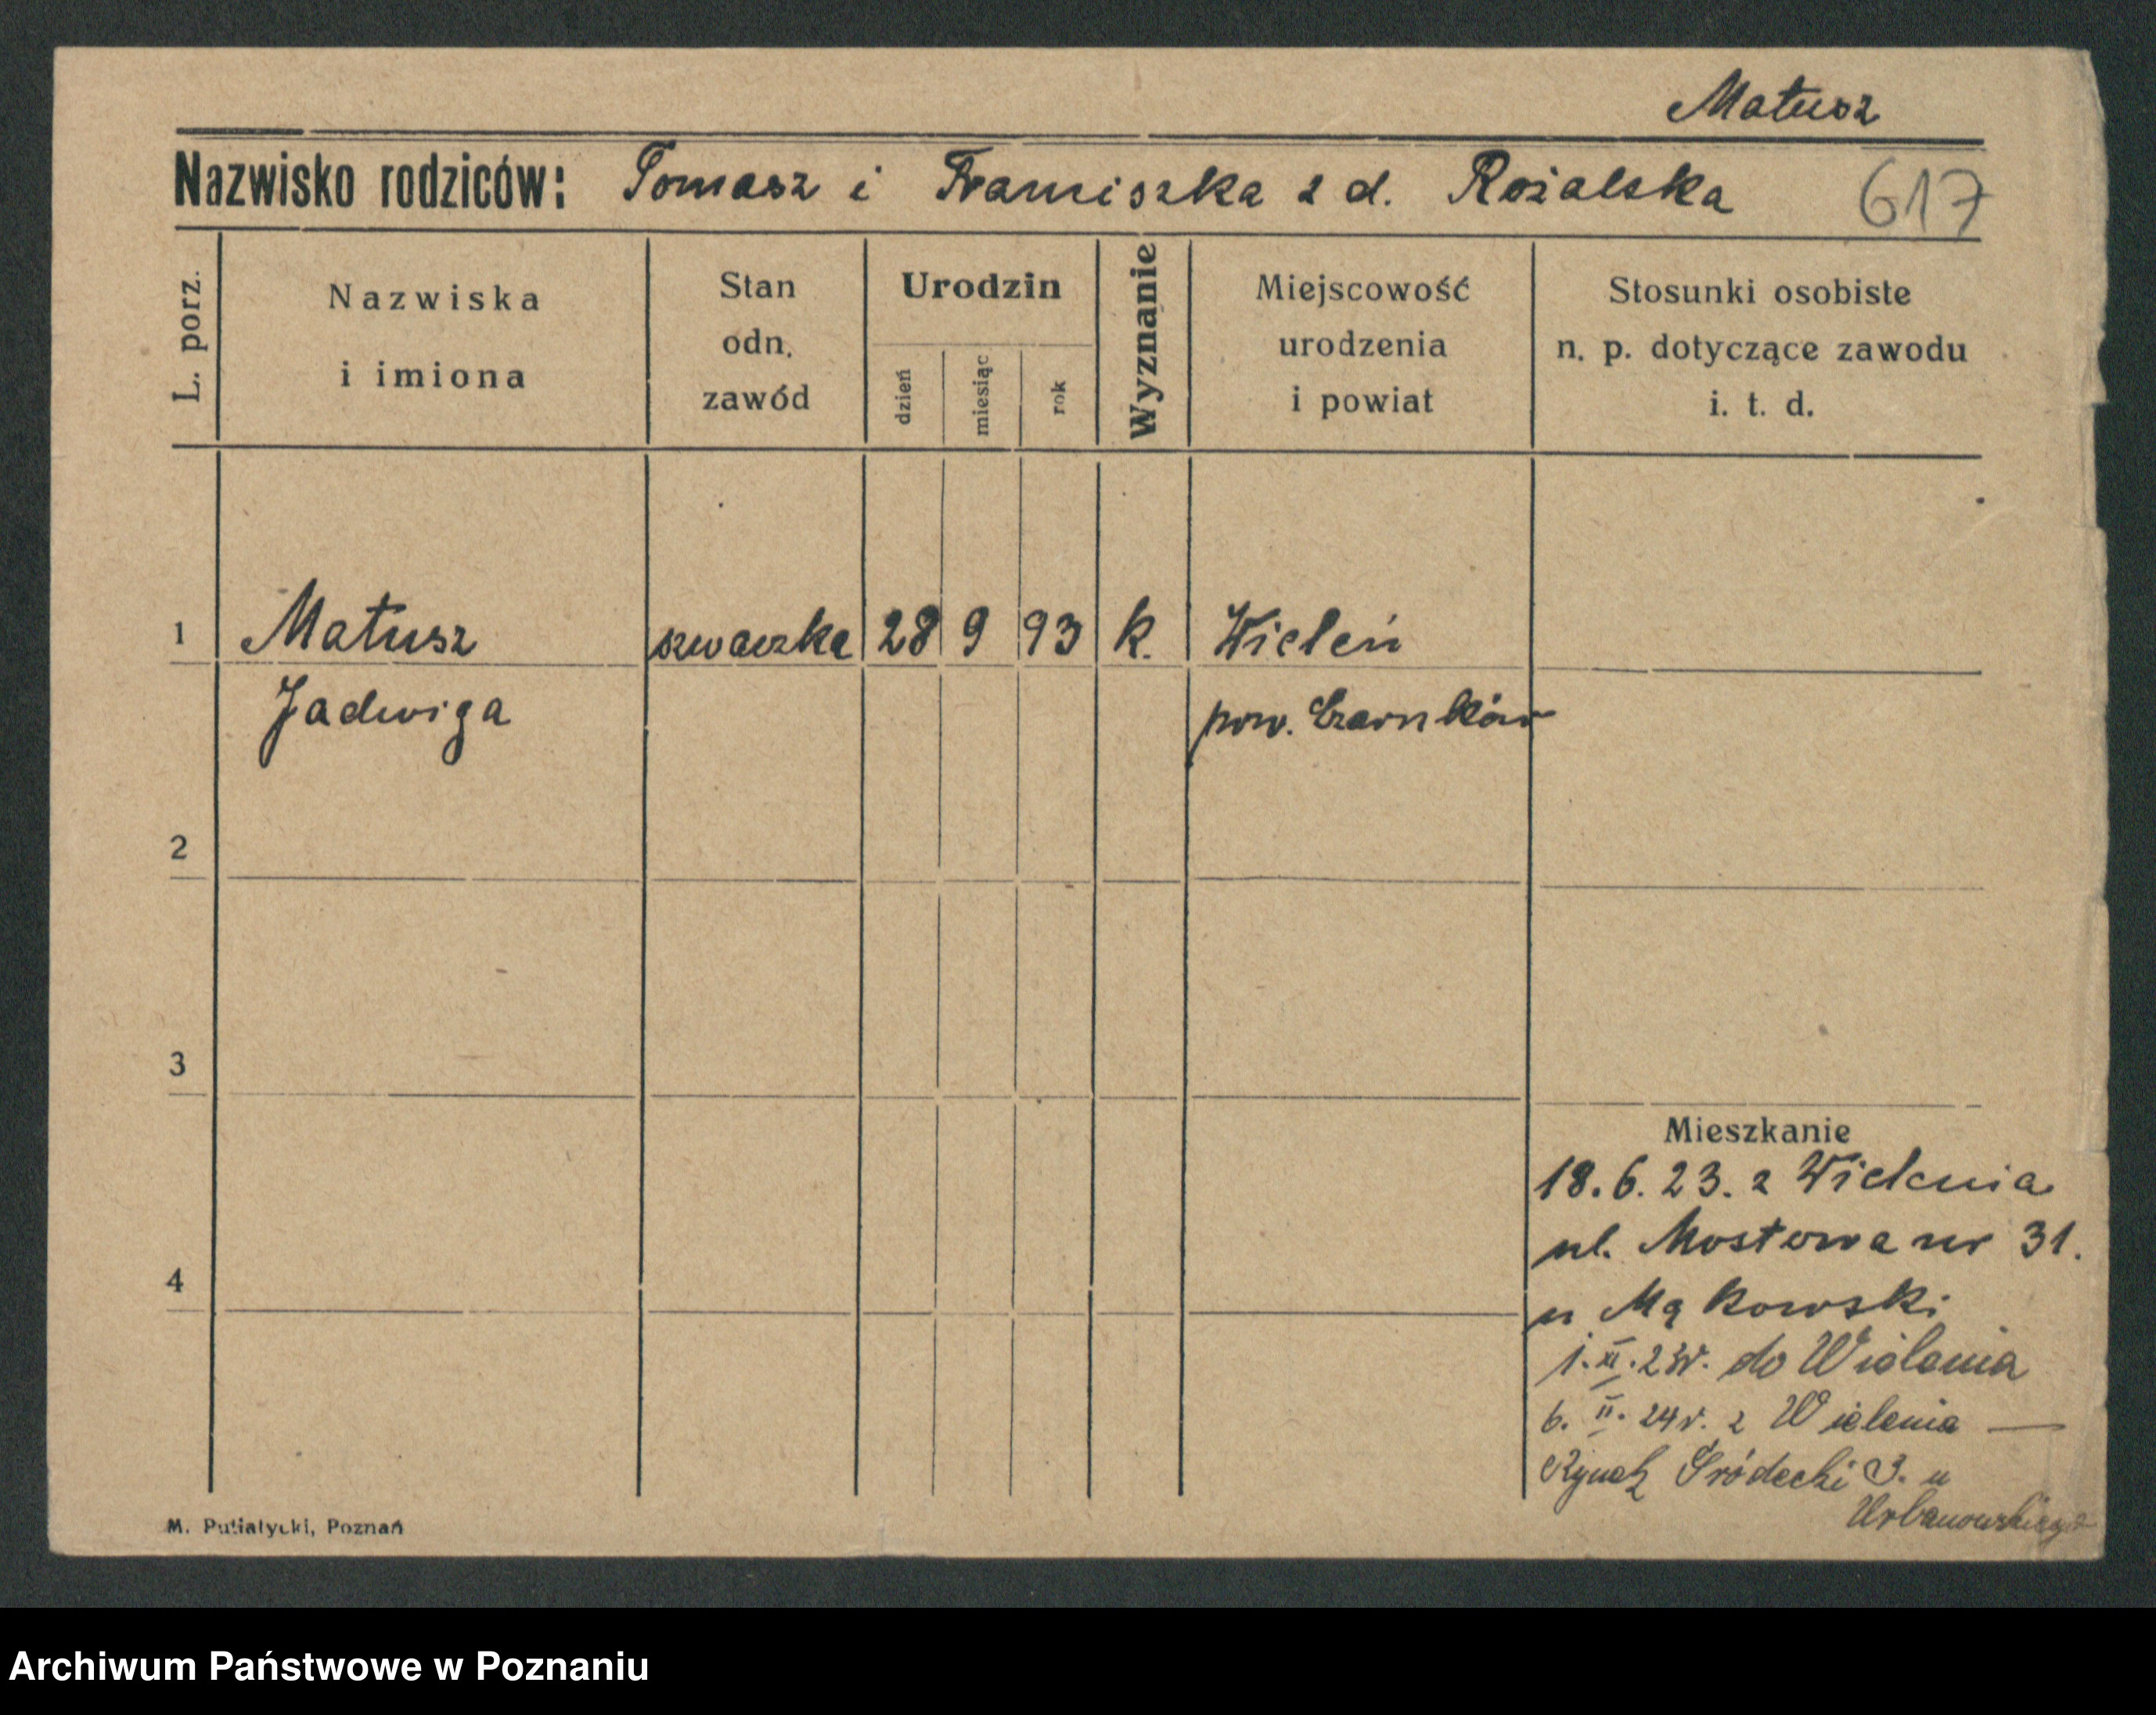 Matusz
Nazwisko rodziców: Tomasz i Franciszka z d. Rożalska 617
L. porz.
Nazwiska
i imiona
Stan
odn.
zawód
Urodzin
dzień
miesiąc
rok
Wyznanie
Miejscowość
urodzenia
i powiat
Stosunki osobiste
n. p. dotyczące zawodu
i. t. d.
1 Matusz szwaczka 28 9 93 k. Wieleń
Jadwiga pow. Czarnków
2
3
Mieszkanie
18.6.23. z Wielenia
ul. Mostowa nr 31.
4
u Mąkowski
1.XI.23r. do Wielenia
6. II. 24r. z Wielenia —
Rynek Śródecki 3. u
Urbanowskiego
M. Putiatycki, Poznań
Archiwum Państwowe w Poznaniu